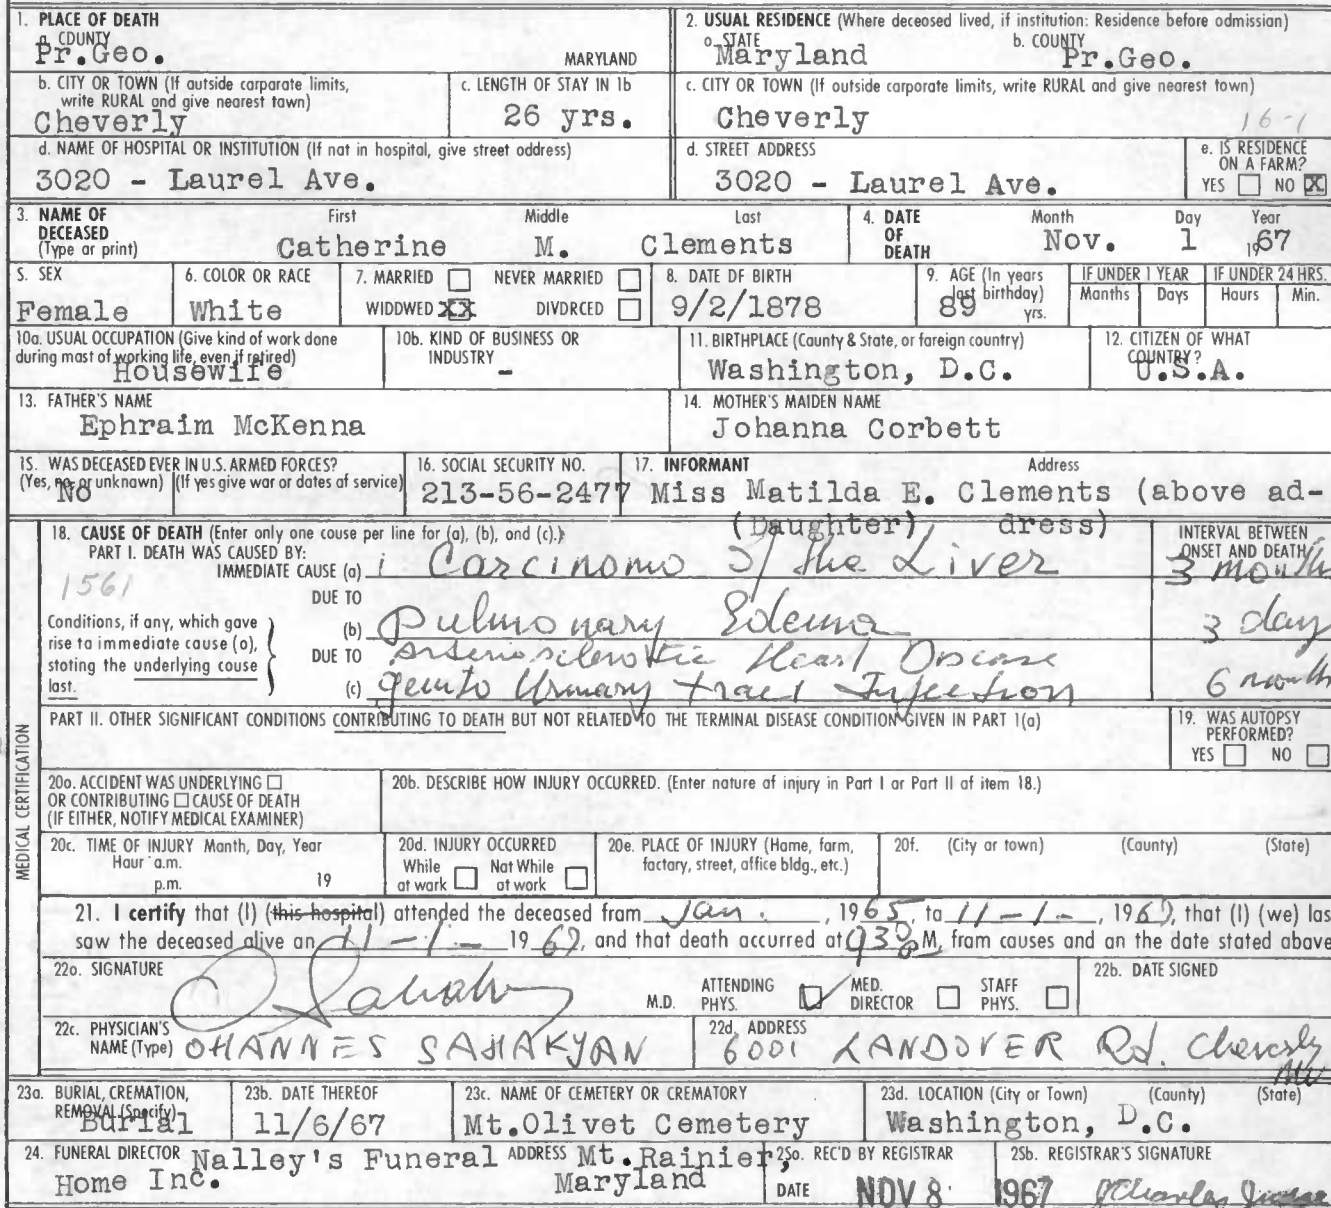 1. PLACE OF DEATH
a. COUNTY
Pr.Geo. MARYLAND
2. USUAL RESIDENCE (Where deceased lived, if institution: Residence before admission)
a. STATE b. COUNTY
Maryland Pr.Geo.
b. CITY OR TOWN (If outside corporate limits, write RURAL and give nearest town)
Cheverly
c. LENGTH OF STAY IN 1b
26 yrs.
c. CITY OR TOWN (If outside corporate limits, write RURAL and give nearest town)
Cheverly
16-1
d. NAME OF HOSPITAL OR INSTITUTION (If not in hospital, give street address)
3020 - Laurel Ave.
d. STREET ADDRESS
3020 - Laurel Ave.
e. IS RESIDENCE ON A FARM?
YES NO X
3. NAME OF DECEASED (Type or print)
First Middle Last
Catherine M. Clements
4. DATE OF DEATH
Month Day Year
Nov. 1 1967
5. SEX
Female
6. COLOR OR RACE
White
7. MARRIED NEVER MARRIED
WIDOWED XX DIVORCED
8. DATE OF BIRTH
9/2/1878
9. AGE (In years last birthday)
89 yrs.
IF UNDER 1 YEAR
Months Days
IF UNDER 24 HRS.
Hours Min.
10a. USUAL OCCUPATION (Give kind of work done during most of working life, even if retired)
Housewife
10b. KIND OF BUSINESS OR INDUSTRY
-
11. BIRTHPLACE (County & State, or foreign country)
Washington, D.C.
12. CITIZEN OF WHAT COUNTRY?
U.S.A.
13. FATHER'S NAME
Ephraim McKenna
14. MOTHER'S MAIDEN NAME
Johanna Corbett
15. WAS DECEASED EVER IN U.S. ARMED FORCES?
(Yes, no, or unknown) (If yes give war or dates of service)
No
16. SOCIAL SECURITY NO.
213-56-2477
17. INFORMANT Address
Miss Matilda E. Clements (above ad-
(Daughter) dress)
18. CAUSE OF DEATH (Enter only one cause per line for (a), (b), and (c).)
PART I. DEATH WAS CAUSED BY:
IMMEDIATE CAUSE (a) Carcinoma of the Liver
INTERVAL BETWEEN ONSET AND DEATH
3 month
1561
DUE TO
Conditions, if any, which gave rise to immediate cause (a), stating the underlying cause last.
(b) Pulmonary Edema 3 day
DUE TO Arteriosclerotic Heart Disease
(c) Genito Urinary tract Infection 6 month
PART II. OTHER SIGNIFICANT CONDITIONS CONTRIBUTING TO DEATH BUT NOT RELATED TO THE TERMINAL DISEASE CONDITION GIVEN IN PART I(a)
19. WAS AUTOPSY PERFORMED?
YES NO
MEDICAL CERTIFICATION
20a. ACCIDENT WAS UNDERLYING
OR CONTRIBUTING CAUSE OF DEATH
(IF EITHER, NOTIFY MEDICAL EXAMINER)
20b. DESCRIBE HOW INJURY OCCURRED. (Enter nature of injury in Part I or Part II of item 18.)
20c. TIME OF INJURY Month, Day, Year
Hour a.m.
p.m. 19
20d. INJURY OCCURRED
While at work Not While at work
20e. PLACE OF INJURY (Home, farm, factory, street, office bldg., etc.)
20f. (City or town) (County) (State)
21. I certify that (I) (this hospital) attended the deceased from Jan. , 1965, to 11-1- , 1967, that (I) (we) las
saw the deceased alive on 11-1- 1967, and that death occurred at 930 M, from causes and on the date stated above
22a. SIGNATURE
M.D. ATTENDING PHYS. MED. DIRECTOR STAFF PHYS.
22b. DATE SIGNED
22c. PHYSICIAN'S NAME (Type) OHANNES SAHAKYAN
22d. ADDRESS
6001 LANDOVER Rd. Cheverly Md
23a. BURIAL, CREMATION, REMOVAL (Specify)
Burial
23b. DATE THEREOF
11/6/67
23c. NAME OF CEMETERY OR CREMATORY
Mt.Olivet Cemetery
23d. LOCATION (City or Town) (County) (State)
Washington, D.C.
24. FUNERAL DIRECTOR ADDRESS
Nalley's Funeral Mt.Rainier,
Home Inc. Maryland
25a. REC'D BY REGISTRAR
DATE NOV 8 1967
25b. REGISTRAR'S SIGNATURE